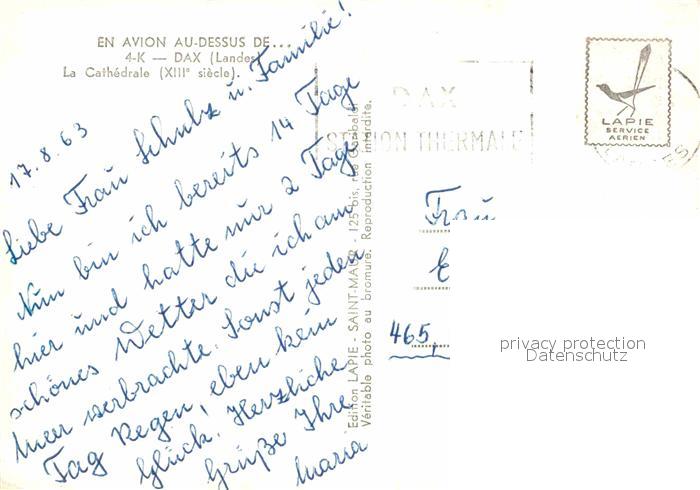 EN AVION AU-DESSUS DE...
4-K — DAX (Landes)
La Cathédrale (XIIIe siècle).
17.8.63
Liebe Frau Schulz u. Familie!
Nun bin ich bereits 14 Tage
hier und hatte nur 2 Tage
schönes Wetter die ich am
Meer verbrachte. Sonst jeden
Tag Regen, eben kein
Glück. Herzliche
Grüße Ihre
Maria
Edition LAPIE - SAINT-MAUR - 125 bis, rue Garibaldi
Véritable photo au bromure. Reproduction interdite.
DAX
STATION THERMALE
LAPIE
SERVICE
AERIEN
Frau
465,
privacy protection
Datenschutz